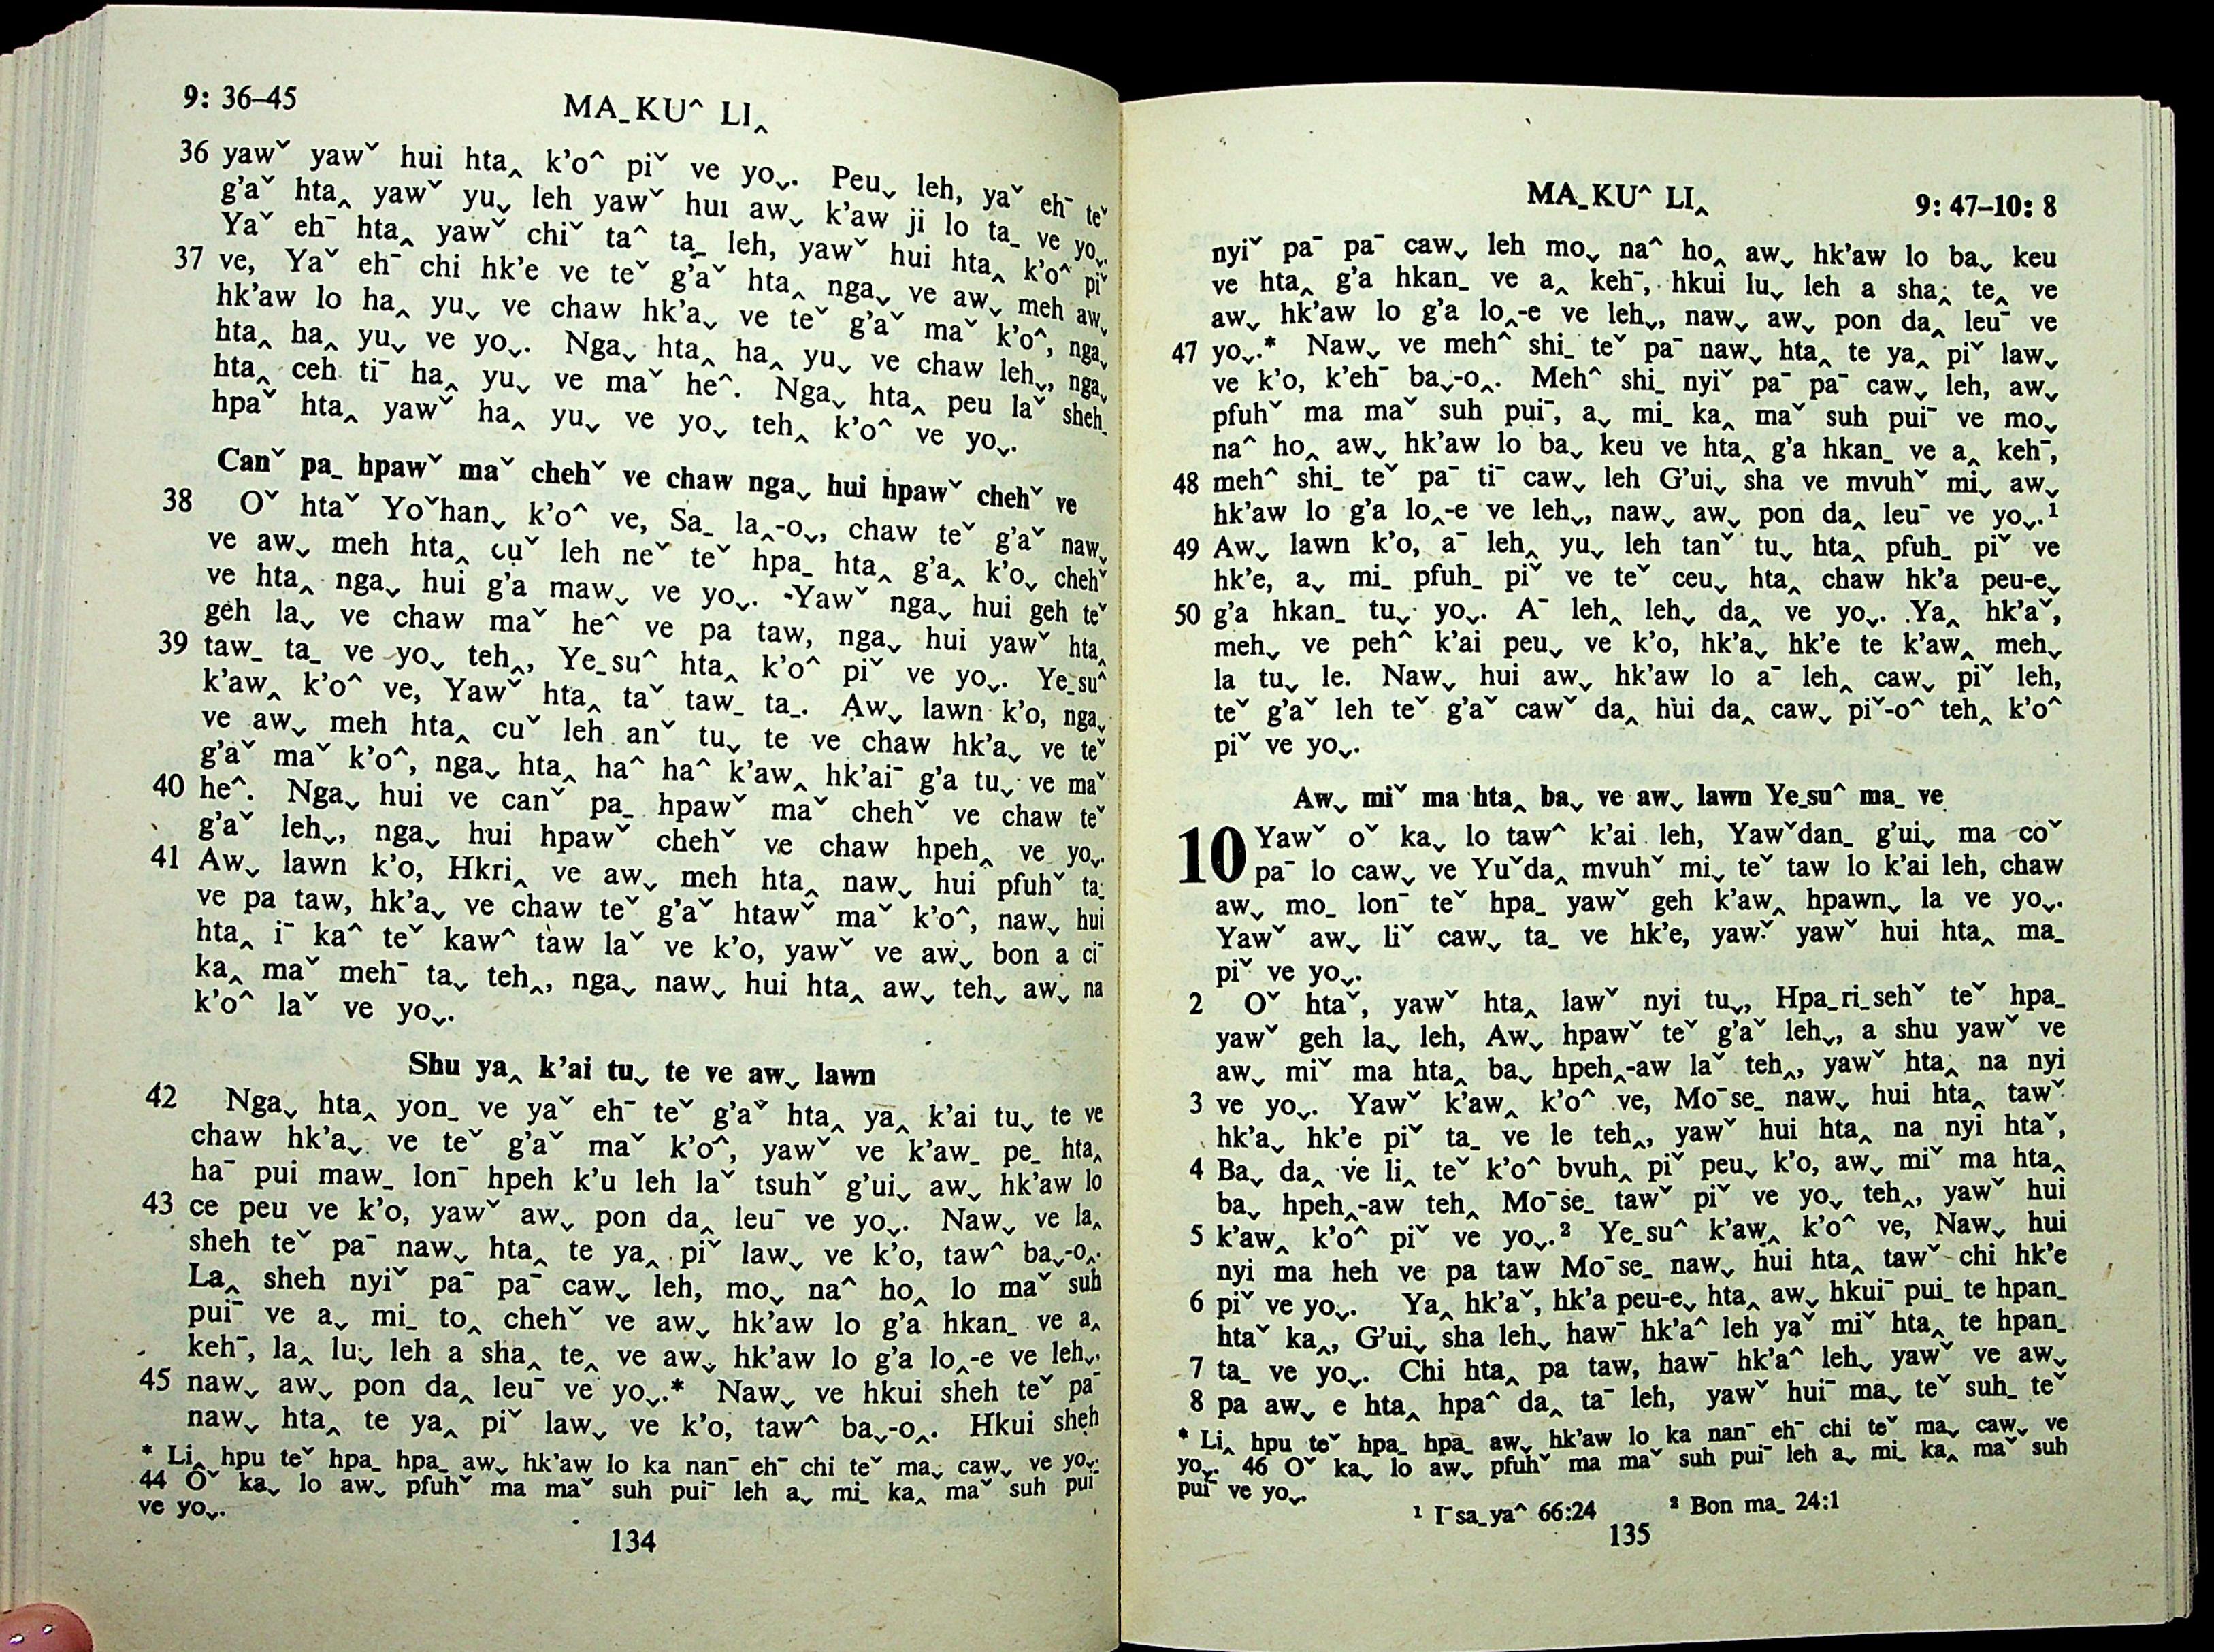 9: 36–45
MA_KUˆ LI‸
36 yawˇ yawˇ hui hta‸ k’oˆ piˇ ve yoˬ. Peuˬ leh, yaˇ ehˉ teˇ
g’aˇ hta‸ yawˇ yuˬ leh yawˇ hui awˬ k’aw ji lo ta_ ve yoˬ.
Yaˇ ehˉ hta‸ yawˇ chiˇ taˆ ta_ leh, yawˇ hui hta‸ k’oˆ piˇ
37 ve, Yaˇ ehˉ chi hk’e ve teˇ g’aˇ hta‸ ngaˬ ve awˬ meh awˬ
hk’aw lo ha‸ yuˬ ve chaw hk’aˬ ve teˇ g’aˇ maˇ k’oˆ, ngaˬ
hta‸ ha‸ yuˬ ve yoˬ. Ngaˬ hta‸ ha‸ yuˬ ve chaw lehˬ, ngaˬ
hta‸ ceh tiˉ ha‸ yuˬ ve maˇ heˆ. Ngaˬ hta‸ peu laˇ sheh_
hpaˇ hta‸ yawˇ ha‸ yuˬ ve yoˬ teh‸ k’oˆ ve yoˬ.
Canˇ pa_ hpawˇ maˇ chehˇ ve chaw ngaˬ hui hpawˇ chehˇ ve
38 Oˇ htaˇ Yoˇhanˬ k’oˆ ve, Sa_ la‸-oˬ, chaw teˇ g’aˇ nawˬ
ve awˬ meh hta‸ cuˇ leh neˇ teˇ hpa_ hta‸ g’a‸ k’oˬ chehˇ
ve hta‸ ngaˬ hui g’a mawˬ ve yoˬ. Yawˇ ngaˬ hui geh teˇ
geh laˬ ve chaw maˇ heˆ ve pa taw, ngaˬ hui yawˇ hta‸
39 taw_ ta_ ve yoˬ teh‸, Ye_suˆ hta‸ k’oˆ piˇ ve yoˬ. Ye_suˆ
k’aw‸ k’oˆ ve, Yawˇ hta‸ taˇ taw_ ta_. Awˬ lawn k’o, ngaˬ
ve awˬ meh hta‸ cuˇ leh anˇ tuˬ te ve chaw hk’aˬ ve teˇ
g’aˇ maˇ k’oˆ, ngaˬ hta‸ haˆ haˆ k’aw‸ hk’aiˉ g’a tuˬ ve maˇ
40 heˆ. Ngaˬ hui ve canˇ pa_ hpawˇ maˇ chehˇ ve chaw teˇ
g’aˇ lehˬ, ngaˬ hui hpawˇ chehˇ ve chaw hpeh‸ ve yoˬ.
41 Awˬ lawn k’o, Hkri‸ ve awˬ meh hta‸ nawˬ hui pfuhˇ ta_
ve pa taw, hk’aˬ ve chaw teˇ g’aˇ htawˇ maˇ k’oˆ, nawˬ hui
hta‸ iˉ kaˆ teˇ kawˆ taw laˇ ve k’o, yawˇ ve awˬ bon a ciˉ
ka‸ maˇ mehˉ taˬ teh‸, ngaˬ nawˬ hui hta‸ awˬ tehˬ awˬ na
k’oˆ laˇ ve yoˬ.
Shu ya‸ k’ai tuˬ te ve awˬ lawn
42 Ngaˬ hta‸ yon_ ve yaˇ ehˉ teˇ g’aˇ hta‸ ya‸ k’ai tuˬ te ve
chaw hk’aˬ ve teˇ g’aˇ maˇ k’oˆ, yawˇ ve k’aw_ pe_ hta‸
haˉ pui maw_ lonˉ hpeh k’u leh laˇ tsuhˇ g’uiˬ awˬ hk’aw lo
43 ce peu ve k’o, yawˇ awˬ pon da‸ leuˉ ve yoˬ. Nawˬ ve la‸
sheh teˇ paˉ nawˬ hta‸ te ya‸ piˇ lawˬ ve k’o, tawˆ baˬ-o‸.
La‸ sheh nyiˇ paˉ paˉ cawˬ leh, moˬ naˆ ho‸ lo maˇ suh
puiˉ ve aˬ mi_ to‸ chehˇ ve awˬ hk’aw lo g’a hkan_ ve a‸
kehˉ, la‸ luˬ leh a sha‸ te‸ ve awˬ hk’aw lo g’a lo‸-e ve lehˬ,
45 nawˬ awˬ pon da‸ leuˉ ve yoˬ.* Nawˬ ve hkui sheh teˇ paˉ
nawˬ hta‸ te ya‸ piˇ lawˬ ve k’o, tawˆ baˬ-o‸. Hkui sheh
* Li‸ hpu teˇ hpa_ hpa_ awˬ hk’aw lo ka nanˉ ehˉ chi teˇ maˬ cawˬ ve yoˬ:
44 Oˇ kaˬ lo awˬ pfuhˇ ma maˇ suh puiˉ leh aˬ mi_ ka‸ maˇ suh puiˉ
ve yoˬ.
134
MA_KUˆ LI‸
9: 47–10: 8
nyiˇ paˉ paˉ cawˬ leh moˬ naˆ ho‸ awˬ hk’aw lo baˬ keu
ve hta‸ g’a hkan_ ve a‸ kehˉ, hkui luˬ leh a sha‸ te‸ ve
awˬ hk’aw lo g’a lo‸-e ve lehˬ, nawˬ awˬ pon da‸ leuˉ ve
47 yoˬ.* Nawˬ ve mehˆ shi_ teˇ paˉ nawˬ hta‸ te ya‸ piˇ lawˬ
ve k’o, k’ehˉ baˬ-o‸. Mehˆ shi_ nyiˇ paˉ paˉ cawˬ leh, awˬ
pfuhˇ ma maˇ suh puiˉ, aˬ mi_ ka‸ maˇ suh puiˉ ve moˬ
naˆ ho‸ awˬ hk’aw lo baˬ keu ve hta‸ g’a hkan_ ve a‸ kehˉ,
48 mehˆ shi_ teˇ paˉ tiˉ cawˬ leh G’uiˬ sha ve mvuhˇ miˬ awˬ
hk’aw lo g’a lo‸-e ve lehˬ, nawˬ awˬ pon da‸ leuˉ ve yoˬ.¹
49 Awˬ lawn k’o, aˉ leh‸ yuˬ leh tanˇ tuˬ hta‸ pfuh_ piˇ ve
hk’e, aˬ mi_ pfuh_ piˇ ve teˇ ceuˬ hta‸ chaw hk’a peu-eˬ
50 g’a hkan_ tuˬ yoˬ. Aˉ leh‸ lehˬ da‸ ve yoˬ. Ya‸ hk’aˇ,
mehˬ ve pehˆ k’ai peuˬ ve k’o, hk’aˬ hk’e te k’aw‸ mehˬ
la tuˬ le. Nawˬ hui awˬ hk’aw lo aˉ leh‸ cawˬ piˇ leh,
teˇ g’aˇ leh teˇ g’aˇ cawˇ da‸ hui da‸ cawˬ piˇ-oˆ teh‸ k’oˆ
piˇ ve yoˬ.
Awˬ miˇ ma hta‸ baˬ ve awˬ lawn Ye_suˆ ma_ ve
10 Yawˇ oˇ kaˬ lo tawˆ k’ai leh, Yawˇdan_ g’uiˬ ma coˇ
paˉ lo cawˬ ve Yuˇda‸ mvuhˇ miˬ teˇ taw lo k’ai leh, chaw
awˬ mo_ lonˉ teˇ hpa_ yawˇ geh k’aw‸ hpawnˬ la ve yoˬ.
Yawˇ awˬ liˇ cawˬ ta_ ve hk’e, yawˇ yawˇ hui hta‸ ma_
piˇ ve yoˬ.
2 Oˇ htaˇ, yawˇ hta‸ lawˇ nyi tuˬ, Hpa_ri_sehˇ teˇ hpa_
yawˇ geh laˬ leh, Awˬ hpawˇ teˇ g’aˇ lehˬ, a shu yawˇ ve
awˬ miˇ ma hta‸ baˬ hpeh‸-aw laˇ teh‸, yawˇ hta‸ na nyi
3 ve yoˬ. Yawˇ k’aw‸ k’oˆ ve, Moˉse_ nawˬ hui hta‸ tawˇ
hk’aˬ hk’e piˇ ta_ ve le teh‸, yawˇ hui hta‸ na nyi htaˇ,
4 Baˬ da‸ ve li‸ teˇ k’oˇ bvuh‸ piˇ peuˬ k’o, awˬ miˇ ma hta‸
baˬ hpeh‸-aw teh‸ Moˉse_ tawˇ piˇ ve yoˬ teh‸, yawˇ hui
5 k’aw‸ k’oˆ piˇ ve yoˬ.² Ye_suˆ k’aw‸ k’oˆ ve, Nawˬ hui
nyi ma heh ve pa taw Moˉse_ nawˬ hui hta‸ tawˇ chi hk’e
6 piˇ ve yoˬ. Ya‸ hk’aˇ, hk’a peu-eˬ hta‸ awˬ hkuiˉ pui_ te hpan_
htaˇ ka‸, G’uiˬ sha lehˬ hawˉ hk’aˆ leh yaˇ miˇ hta‸ te hpan_
7 ta_ ve yoˬ. Chi hta‸ pa taw, hawˉ hk’aˆ lehˬ yawˇ ve awˬ
8 pa awˬ e hta‸ hpaˆ da‸ taˉ leh, yawˇ huiˉ maˬ teˇ suh_ teˇ
* Li‸ hpu teˇ hpa_ hpa_ awˬ hk’aw lo ka nanˉ ehˉ chi teˇ maˬ cawˬ ve
yoˬ. 46 Oˇ kaˬ lo awˬ pfuhˇ ma maˇ suh puiˉ leh aˬ mi_ ka‸ maˇ suh
puiˉ ve yoˬ.
¹ Iˉsa_yaˆ 66:24 ² Bon ma_ 24:1
135